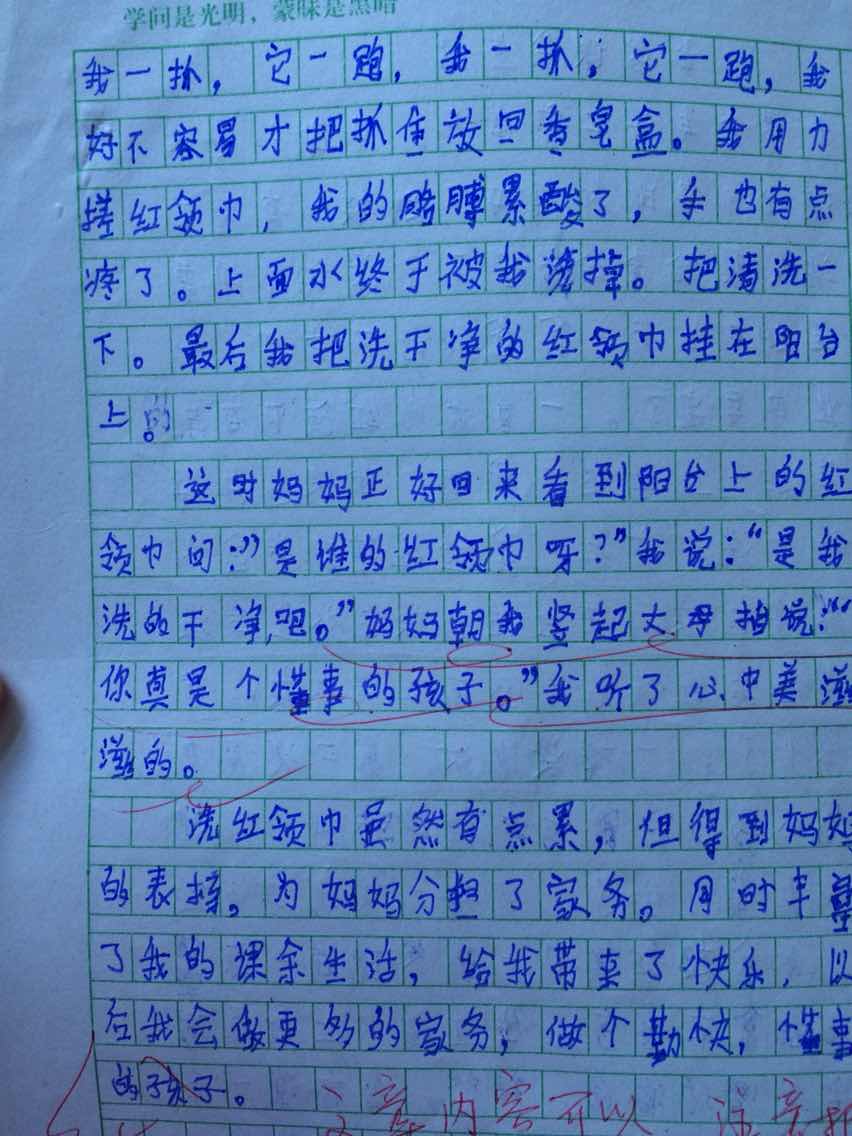 学问是光明，蒙昧是黑暗
我一抓，它一跑，我一抓，它一跑，我
好不容易才把抓住放回香皂盒。我用力
搓红领巾，我的胳膊累酸了，手也有点
疼了。上面水终于被我洗掉。把清洗一
下。最后我把洗干净的红领巾挂在阳台
上。
这时妈妈正好回来看到阳台上的红
领巾问：”是谁的红领巾呀？”我说：“是我
洗的干净吧。”妈妈朝我竖起大母指说：“
你真是个懂事的孩子。”我听了心中美滋
滋的。
洗红领巾虽然有点累，但得到妈妈
的表扬。为妈妈分担了家务。同时丰
了我的课余生活，给我带来了快乐，以
后我会做更多的家务，做个勤快，懂事
的孩子。
文章内容可以 注意